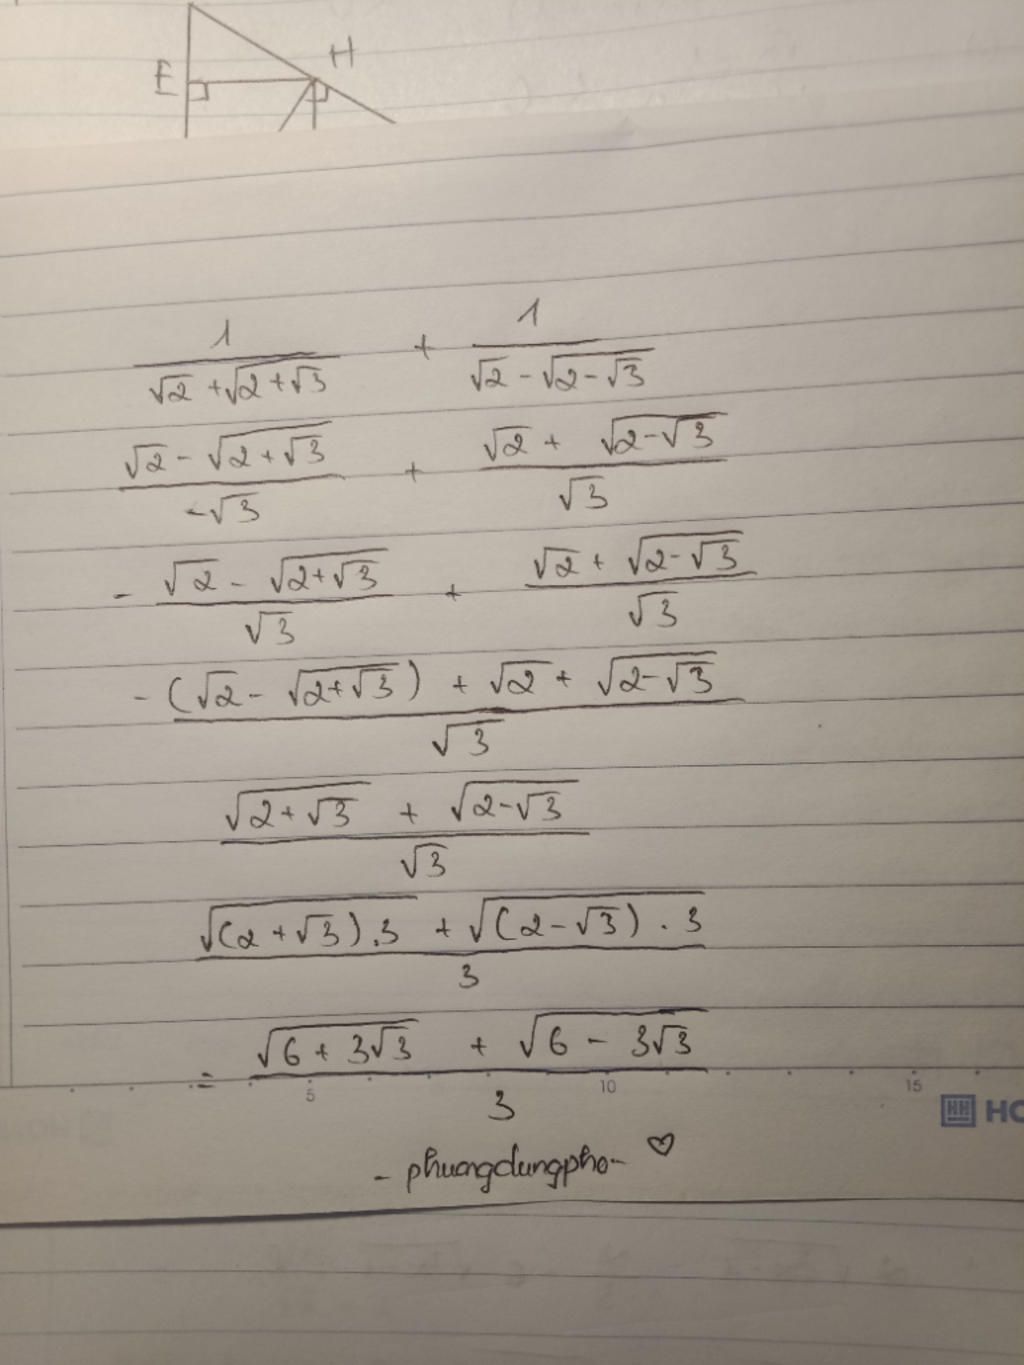 E H
1/(√2 + √(2 + √3)) + 1/(√2 - √(2 - √3))
(√2 - √(2 + √3))/(-√3) + (√2 + √(2 - √3))/√3
- (√2 - √(2 + √3))/√3 + (√2 + √(2 - √3))/√3
(-(√2 - √(2 + √3)) + √2 + √(2 - √3))/√3
(√(2 + √3) + √(2 - √3))/√3
(√((2 + √3).3) + √((2 - √3).3))/3
= (√(6 + 3√3) + √(6 - 3√3))/3
5 10 15
HH HO
- phuongdungpho - ♡